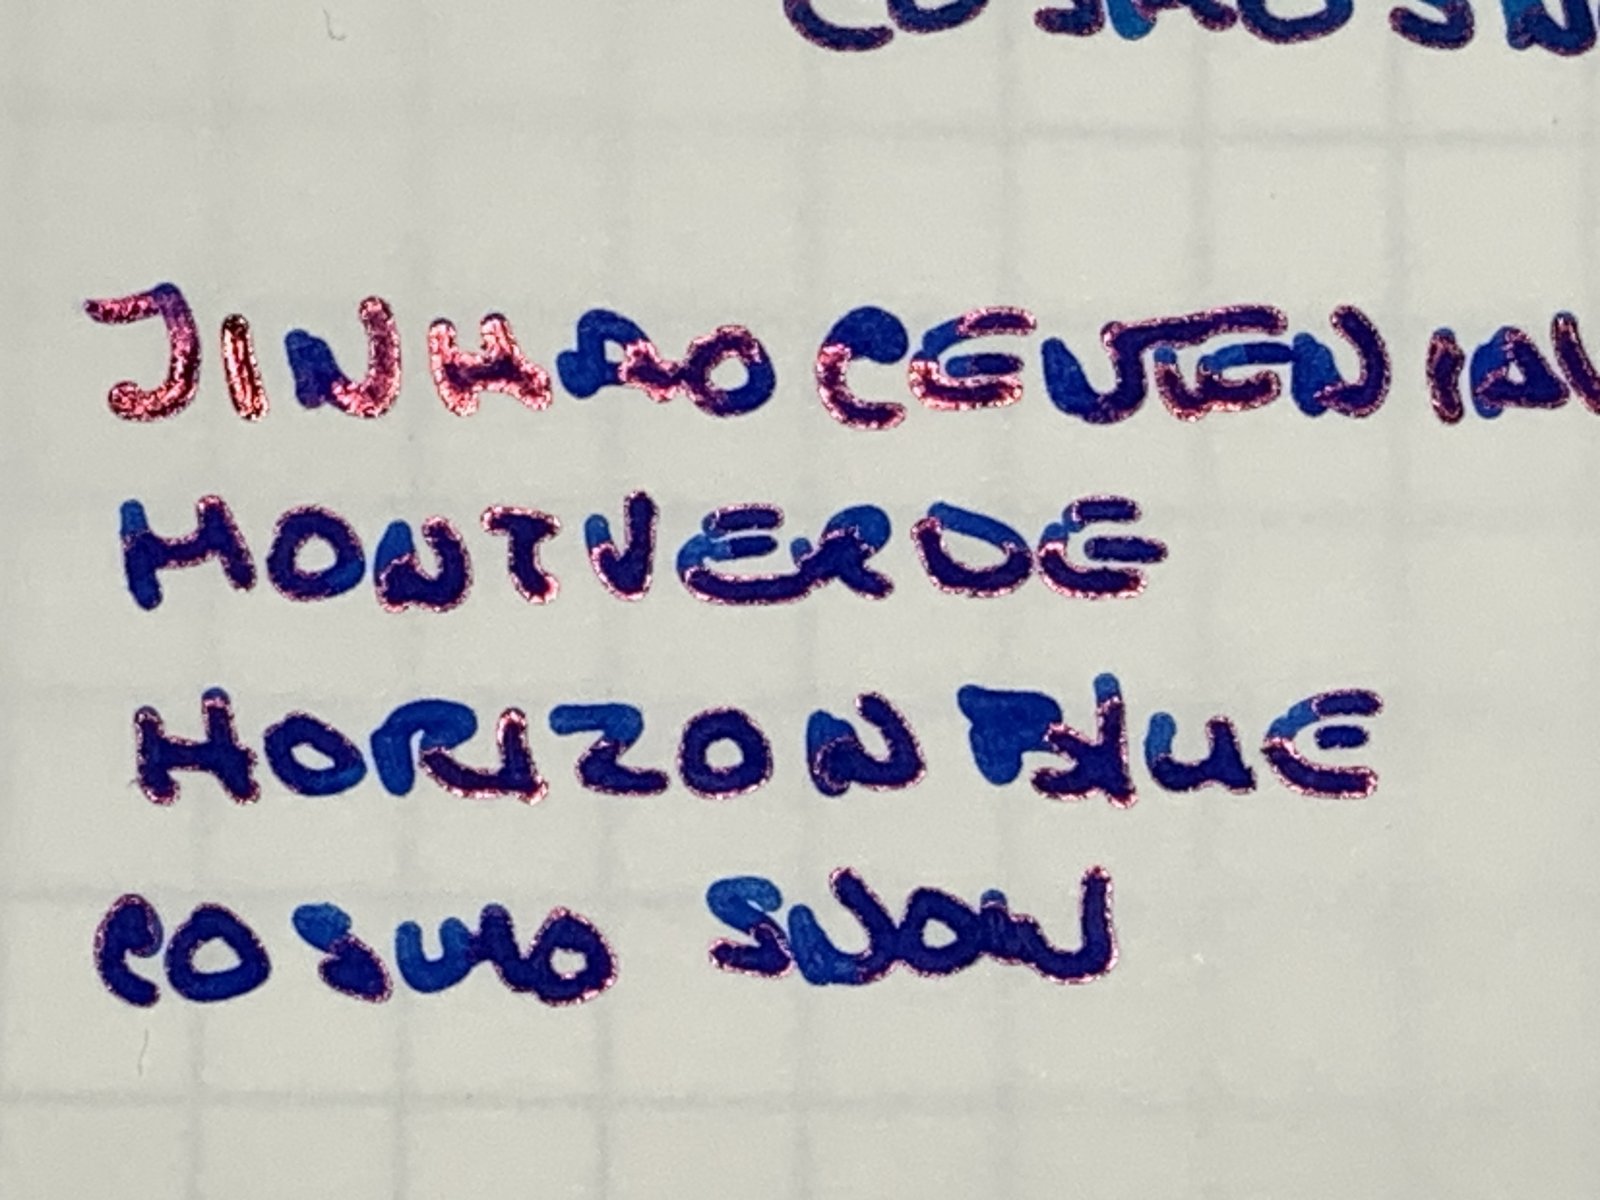 COSMO SN
JINHAO CENTENIAL
MONTVERDE
HORIZON BLUE
COSMO SNOW